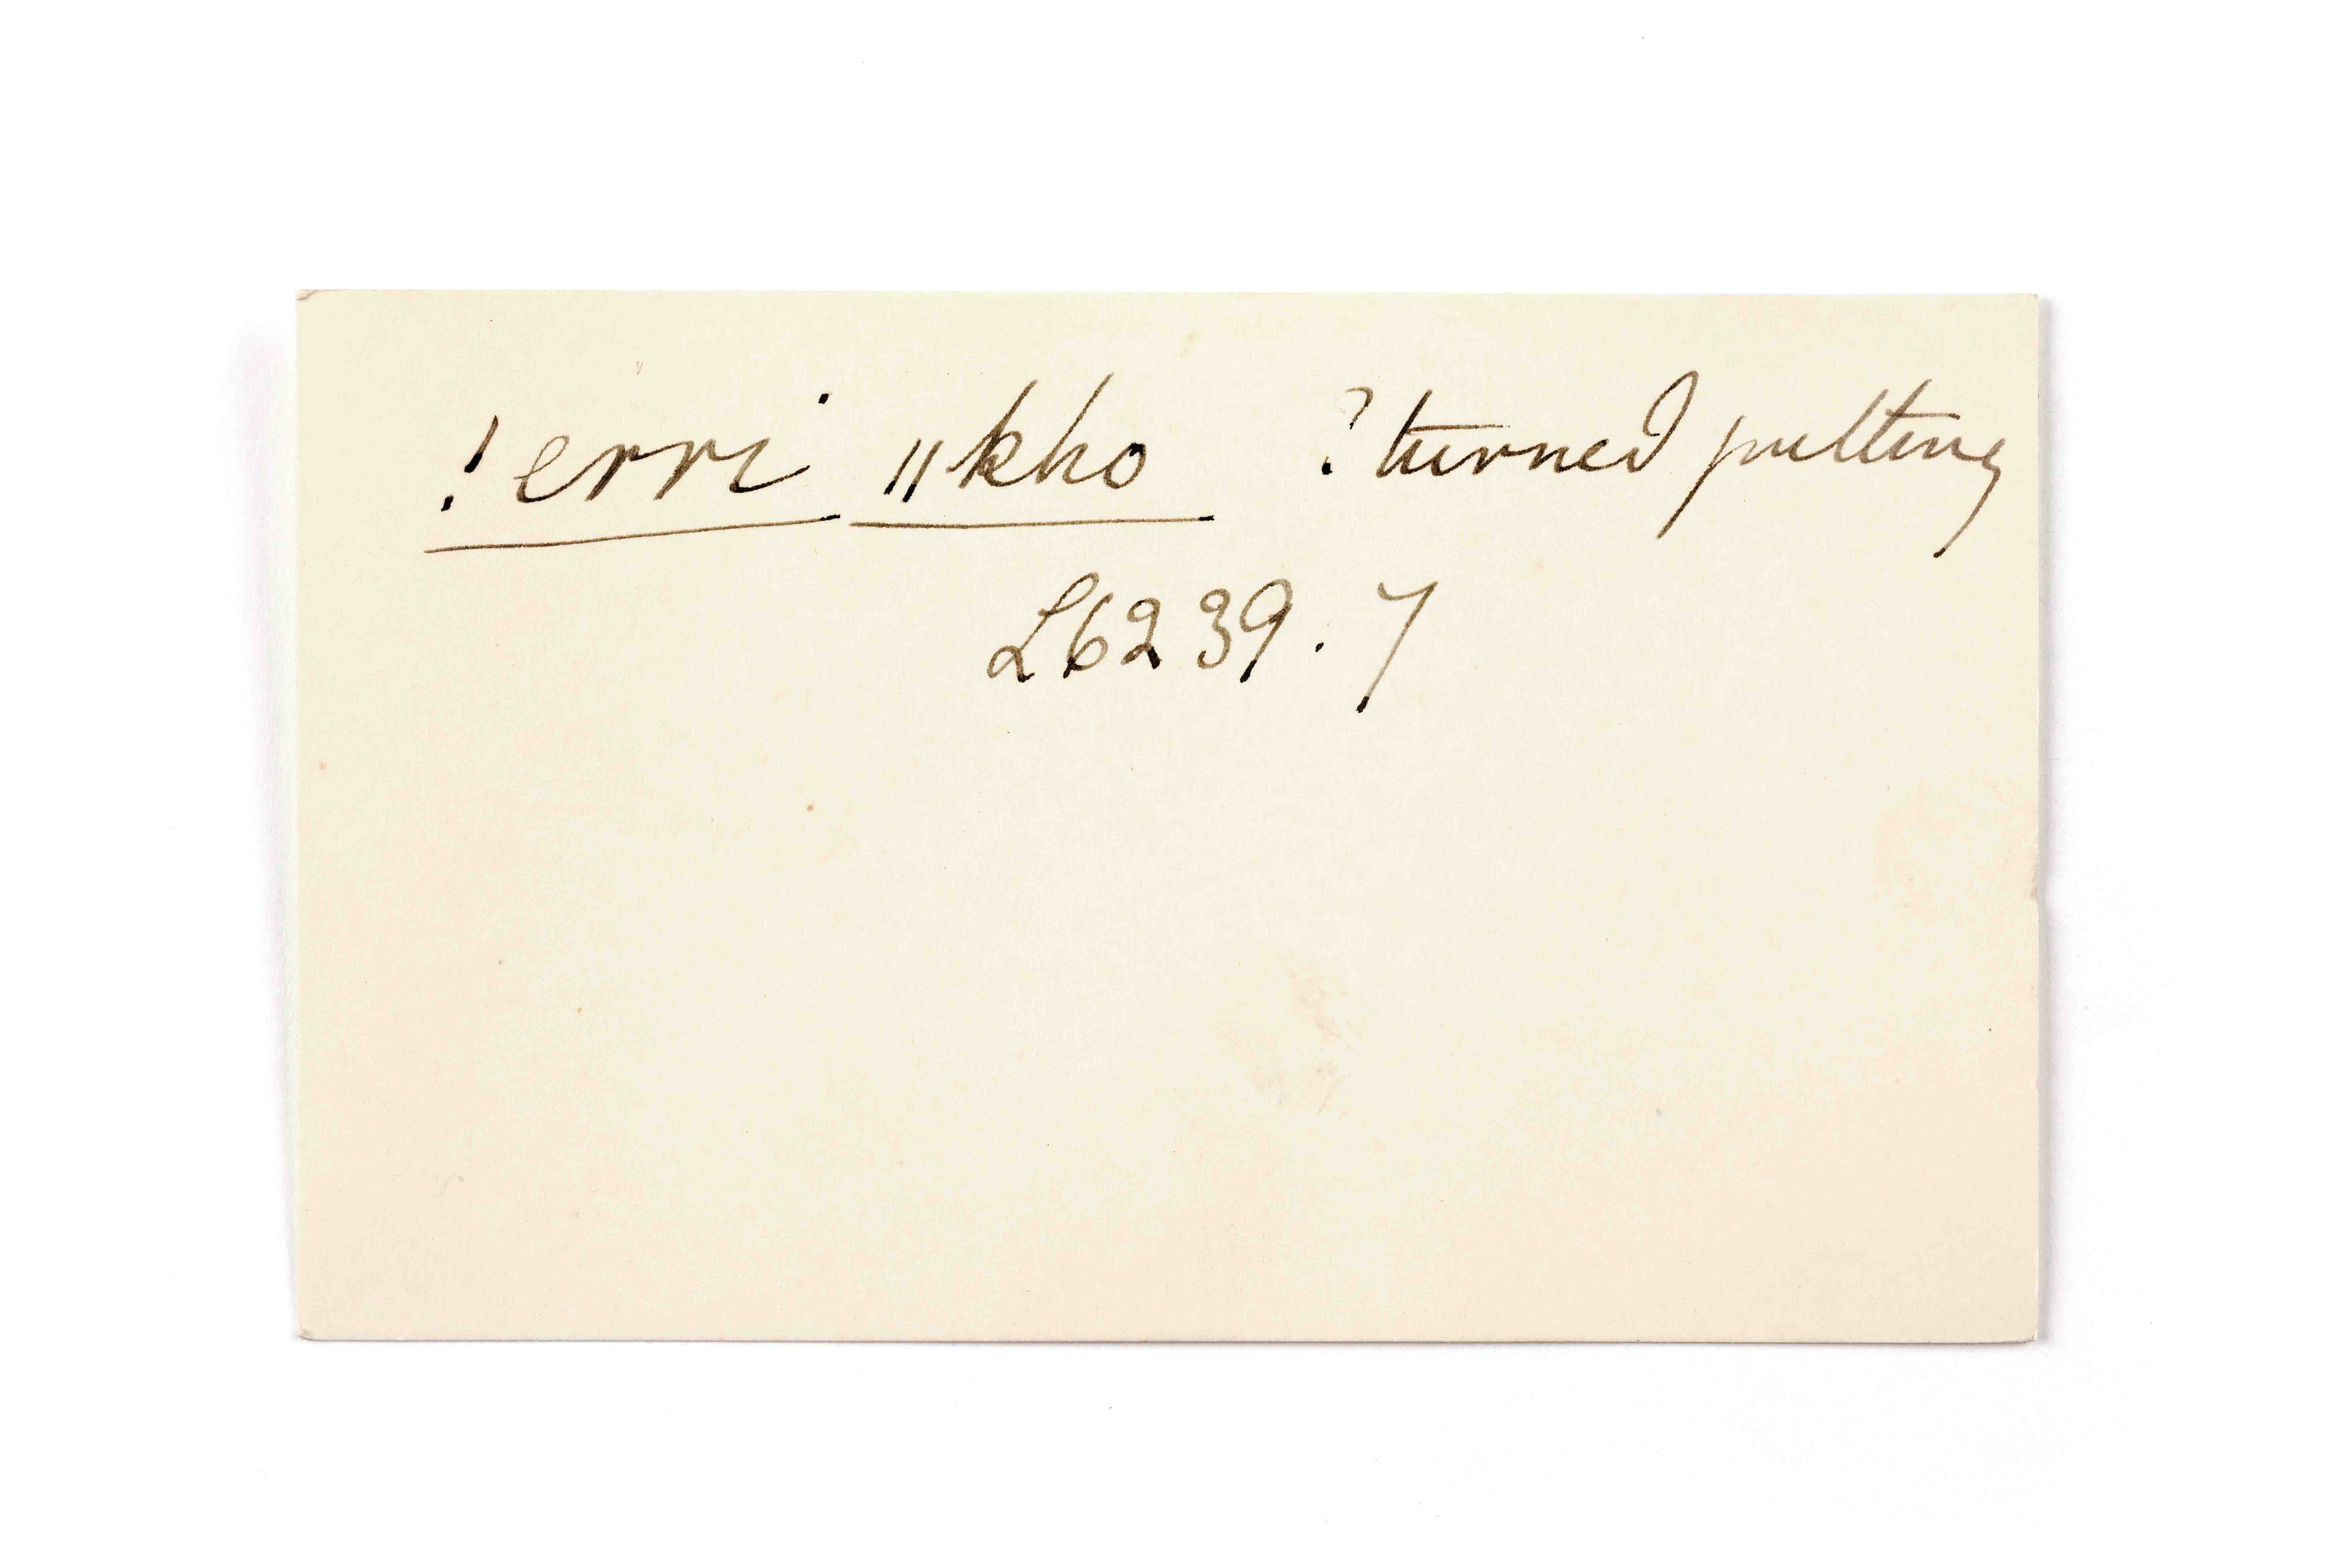 !erri ǁkho ?turned putting
L6239.7